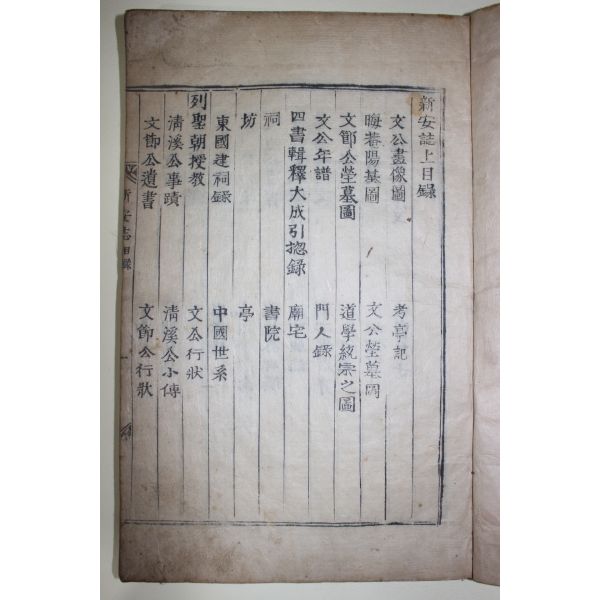 新安誌上目錄
文公畫像圖 考亭記
晦菴陽基圖 文公塋墓圖
文節公塋墓圖 道學統宗之圖
文公年譜 門人錄
四書輯釋大成引揔錄 廟宅
祠 書院
坊 亭
東國建祠錄 中國世系
列聖朝授教 文公行狀
淸溪公事蹟 淸溪公小傳
文節公遺書 文節公行狀
新安志 目錄 一